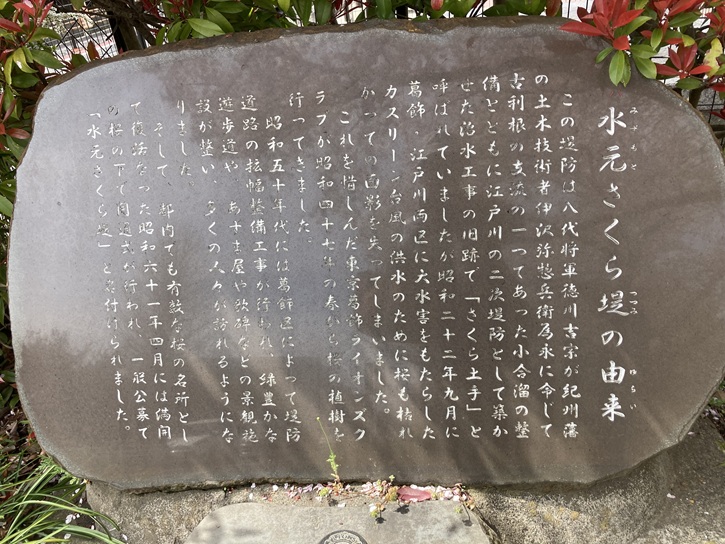 水元さくら堤の由来
みずもと
つつみ
ゆらい
この堤防は八代将軍徳川吉宗が紀州藩
の土木技術者伊沢弥惣兵衛為永に命じて
古利根の支流の一つであった小合溜の整
備とともに江戸川の二次堤防として築か
せた治水工事の旧跡で「さくら土手」と
呼ばれていましたが昭和二十二年九月に
葛飾・江戸川両区に大水害をもたらした
カスリーン台風の供水のために桜も枯れ
かつての面影を失ってしまいました。
これを惜しんだ東京葛飾ライオンズク
ラブが昭和四十七年の春から桜の植樹を
行ってきました。
昭和五十年代には葛飾区によって堤防
道路の拡幅整備工事が行われ、緑豊かな
遊歩道や、あずま屋や歌碑などの景観施
設が整い、多くの人々が訪れるようにな
りました。
そして、都内でも有数な桜の名所とし
て復活なった昭和六十一年四月には満開
の桜の下で開道式が行われ、一般公募で
「水元さくら堤」と名付けられました。